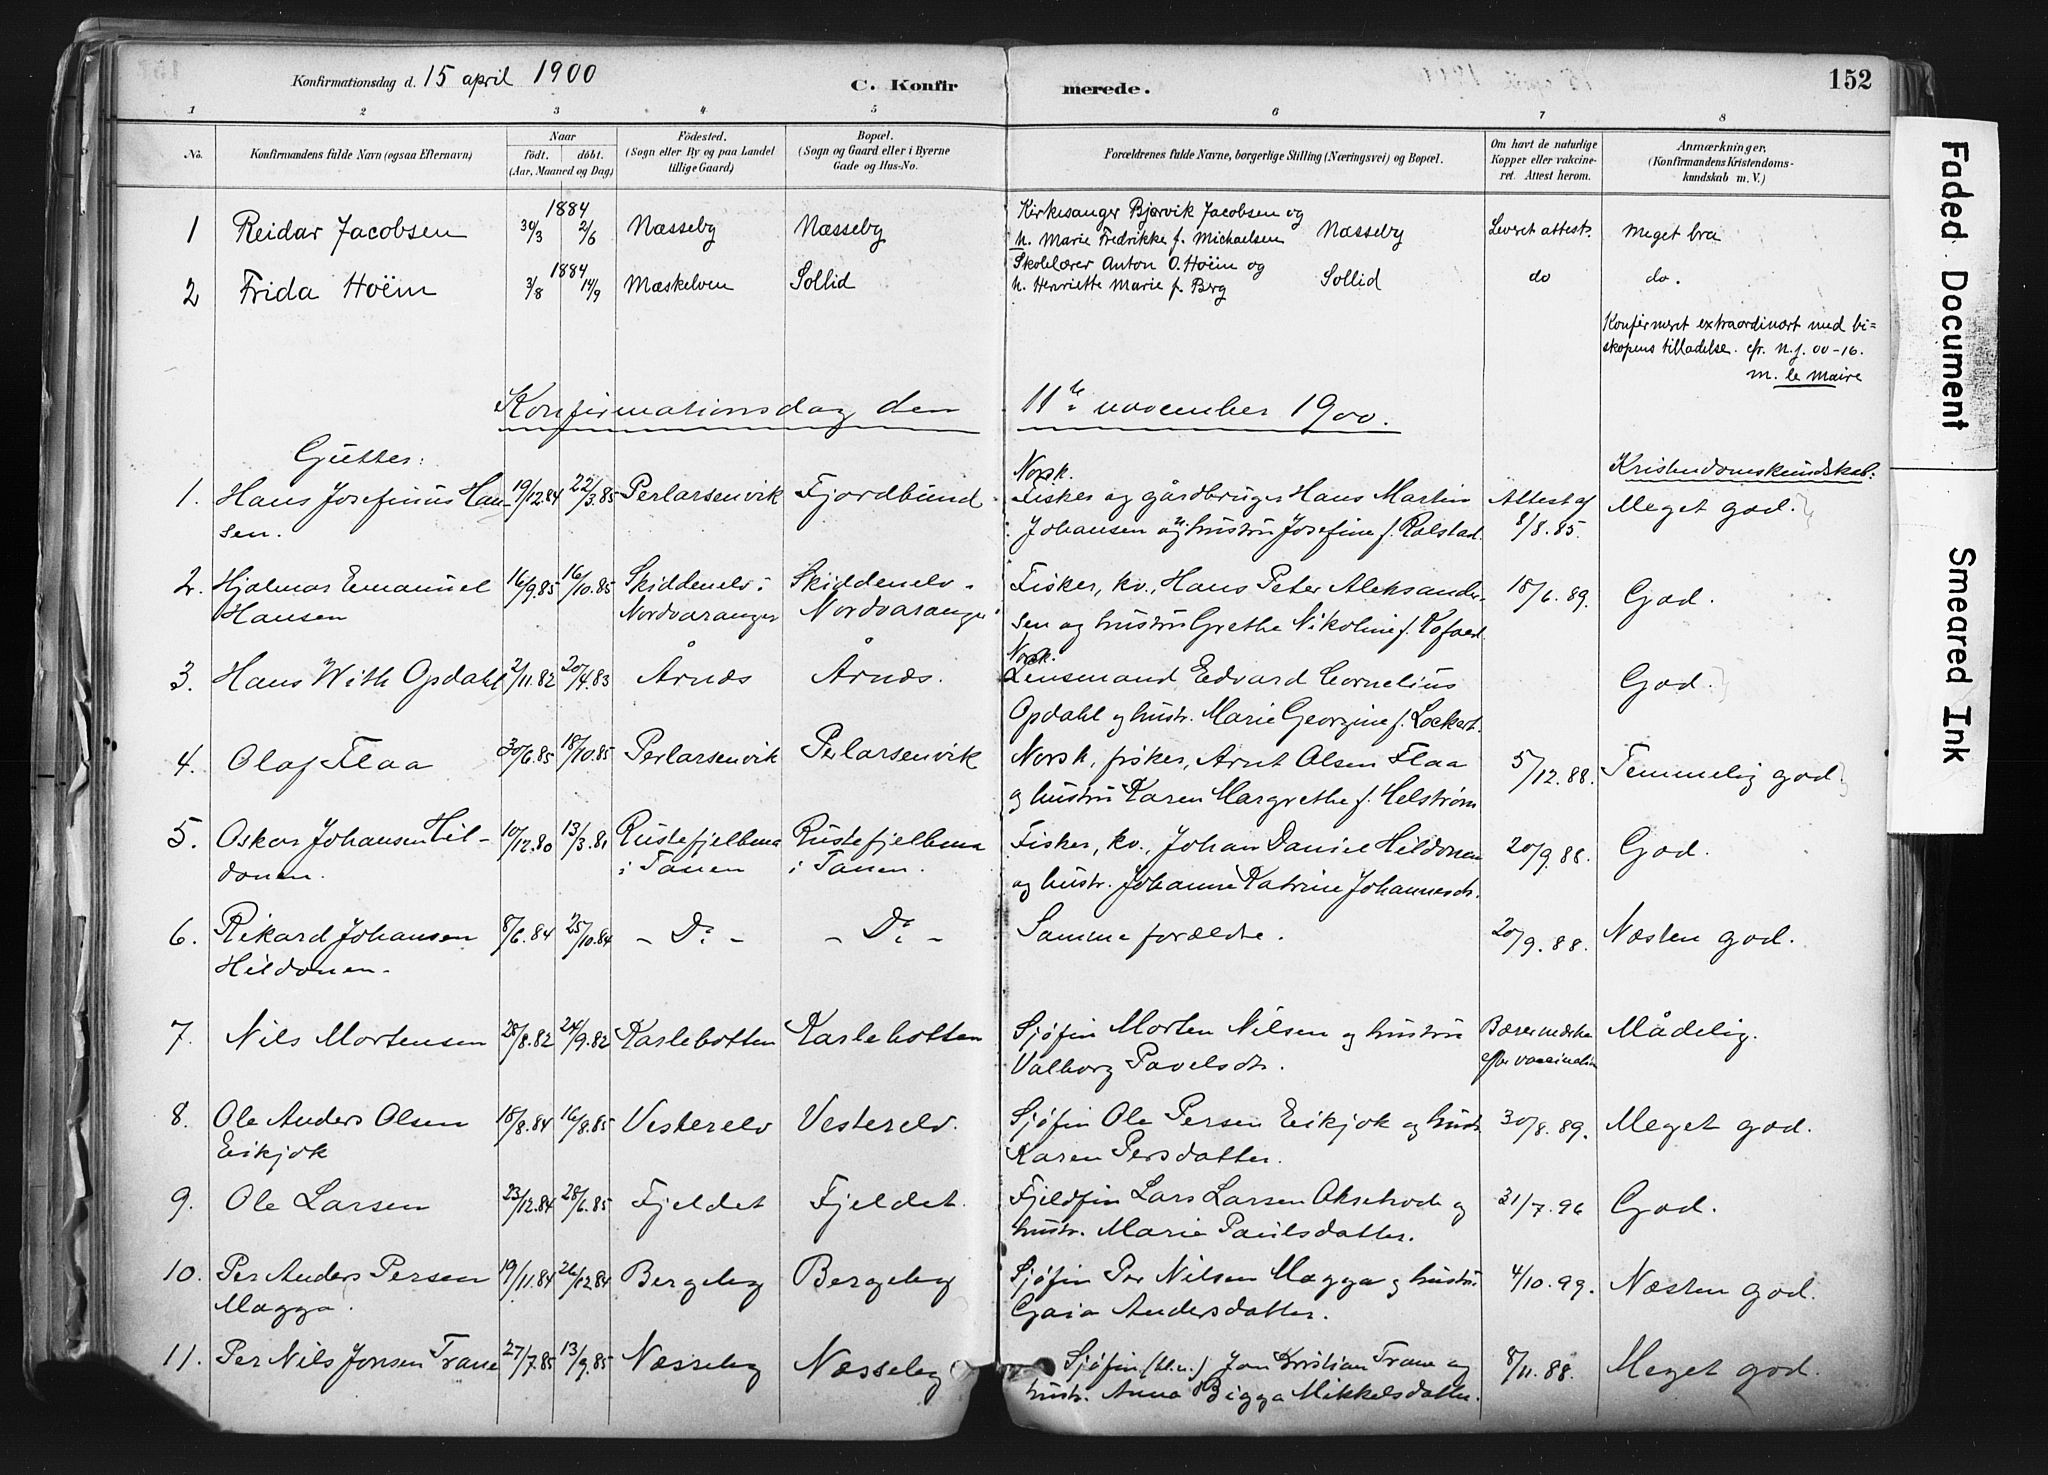 Konfirmationsdag d. 15 april 1900 C. Konfirmerede. 152
1 2 3 4 5 6 7 8
No. Konfirmandens fulde Navn (ogsaa Efternavn) Naar født. døbt. (Aar, Maaned og Dag) Fødested. (Sogn eller By og paa Landet tillige Gaard) Bopæl. (Sogn og Gaard eller i Byerne Gade og Hus-No. Forældrenes fulde Navne, borgerlige Stilling (Næringsvei) og Bopæl. Om havt de naturlige Kopper eller vakcineret. Attest herom. Anmærkninger, (Konfirmandens Kristendomskundskab m. V.)
1 Reidar Jacobsen 1884 30/3 2/6 Næsseby Næsseby Kirkesanger Bjørvik Jacobsen og
h. Marie Fredrikke f. Michaelsen Næsseby Leveret attest. Meget bra
2 Frida Hoëm 1884 3/8 14/9 Mæskelven Sollid Skolelærer Anton O. Hoëm og
h. Henriette Marie f. Berg Sollid do do.
Konfirmeret extraordinært med bi=
skopens tilladelse. cfr. n.j. 00-16.
M. le Maire
Konfirmationsdag den 11te november 1900.
Gutter: Kristendomskundskab:
1. Hans Josefinus Han- 19/12.84 22/3.85 Perlarsenvik Fjordbund Norsk.
Fisker og gårdbruger Hans Martin Attest af Meget god.
sen. Johansen og hustru Josefine f. Kalstad. 8/8.85.
2. Hjalmar Emanuel 16/9.85 16/10.85 Skiddenelv i Skiddenelv- Fisker, kv., Hans Peter Aleksander- 18/6.89. God.
Hansen Nordvaranger Nordvaranger sen og hustru Grethe Nikoline f. Kofoed
3. Hans With Opdahl 2/11.82 20/4.83 Årnæs Årnæs. Norsk.
Lensmand Edvard Cornelius God.
Opdahl og hustr. Marie Georgine f. Lockert.
4. Olaf Flaa 30/6.85 18/10.85 Perlarsenvik Perlarsenvik Norsk, fisker, Arnt Olsen Flaa 5/12.88. Temmelig god
og hustru Karen Margrethe f. Helstrøm
5. Oskar Johansen Hil- 10/12.80 13/3.81 Rustefjelbma Rustefjelbma Fisker, kv., Johan Daniel Hildonen 20/9.88. God.
donen. i Tanen i Tanen. og hustr. Johanne Katrine Johannesdt.
6. Rikard Johansen 8/6.84 25/10.84 - Do - - Do - Samme forældre. 20/9.88. Næsten god.
Hildonen.
7. Nils Mortensen 28/8.82 24/9.82 Karlebotten Karlebotten Sjøfin Morten Nilsen og hustru Bærer mærke Mådelig.
Valborg Pavelsdt. efter vaccination
8. Ole Anders Olsen 18/8.84 16/8.85 Vesterelv Vesterelv. Sjøfin Ole Persen Eikjok og hustr. 30/8.89. Meget god.
Eikjok Karen Persdatter.
9. Ole Larsen 23/12.84 28/6.85 Fjeldet Fjeldet. Fjeldfin Lars Larsen og 31/7.96 God.
hustr. Marie Paulsdatter.
10. Per Anders Persen 19/11.84 26/12.84 Bergeby Bergeby Sjøfin Per Nilsen Magga og hustru 4/10.99. Næsten god.
Magga. Gaia Andersdatter.
11. Per Nils Jonsen Trane 27/7.85 13/9.85 Næsseby Næsseby Sjøfin Jon Kristian Trane og 8/11.88. Meget god.
hustr. Anna Bigga Mikkelsdatter.
Faded Document
Smeared Ink